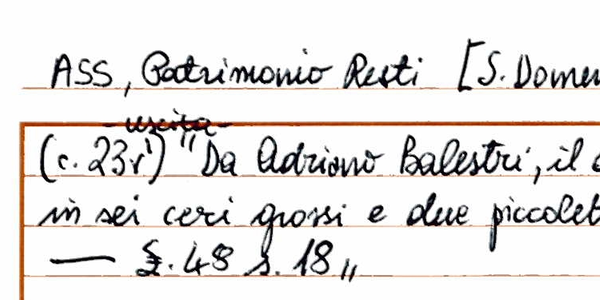 ASS, Patrimonio Resti [S. Domen
uscita
(c. 23r) "Da Adriano Balestri, il
in sei ceri grossi e due piccolet
— £. 48 s. 18 "